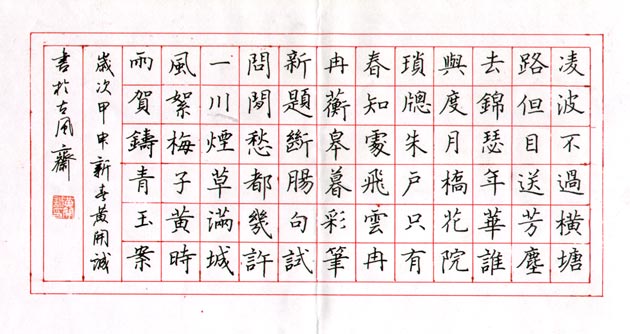 凌波不過橫塘
路但目送芳塵
去錦瑟年華誰
與度月橋花院
瑣牕朱戶只有
春知處飛雲冉
冉蘅皋暮彩筆
新題斷腸句試
問閒愁都幾許
一川煙草滿城
風絮梅子黃時
雨賀鑄青玉案
歲次甲申新春黃開誠
書於古風齋